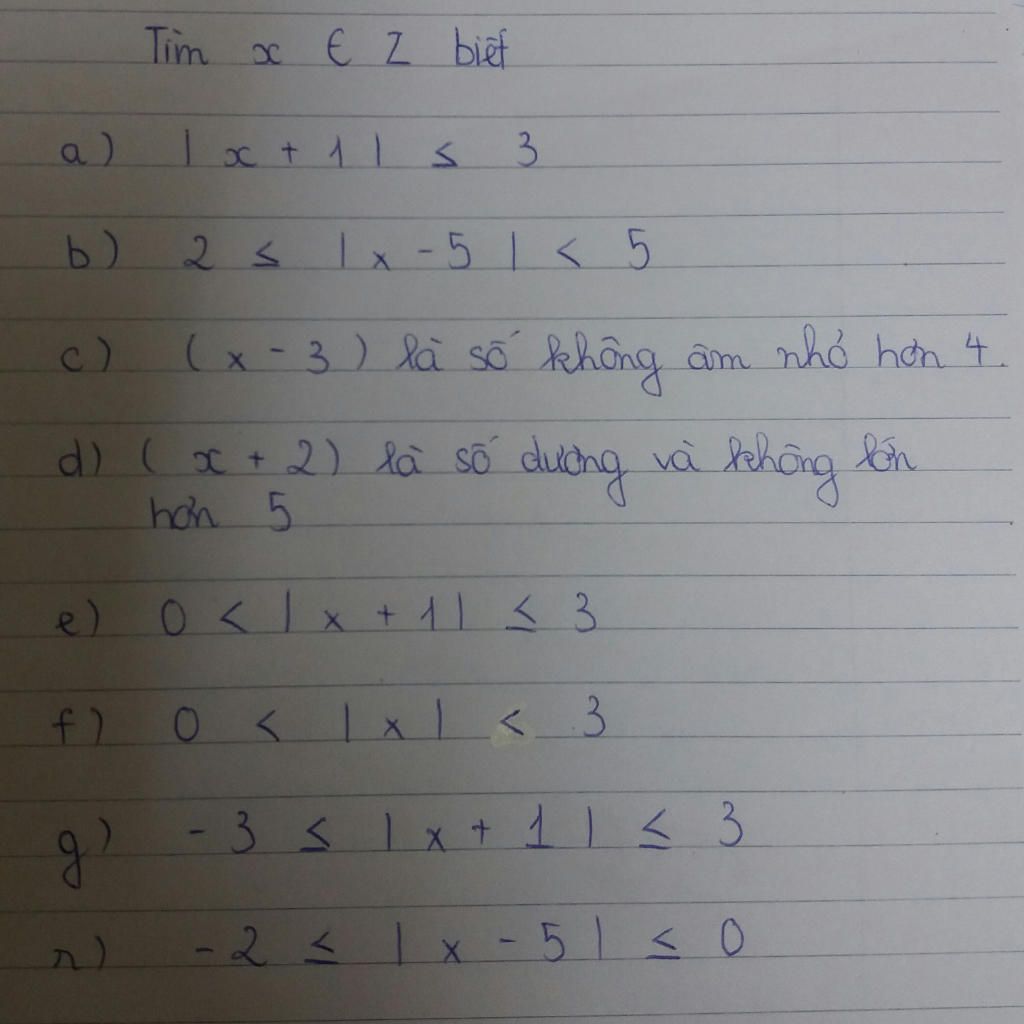 Tìm x ∈ Z biết
a) |x + 1| ≤ 3
b) 2 ≤ |x - 5| < 5
c) (x - 3) là số không âm nhỏ hơn 4.
d) (x + 2) là số dương và không lớn
hơn 5
e) 0 < |x + 1| ≤ 3
f) 0 < |x| < 3
g) -3 ≤ |x + 1| ≤ 3
h) -2 ≤ |x - 5| ≤ 0